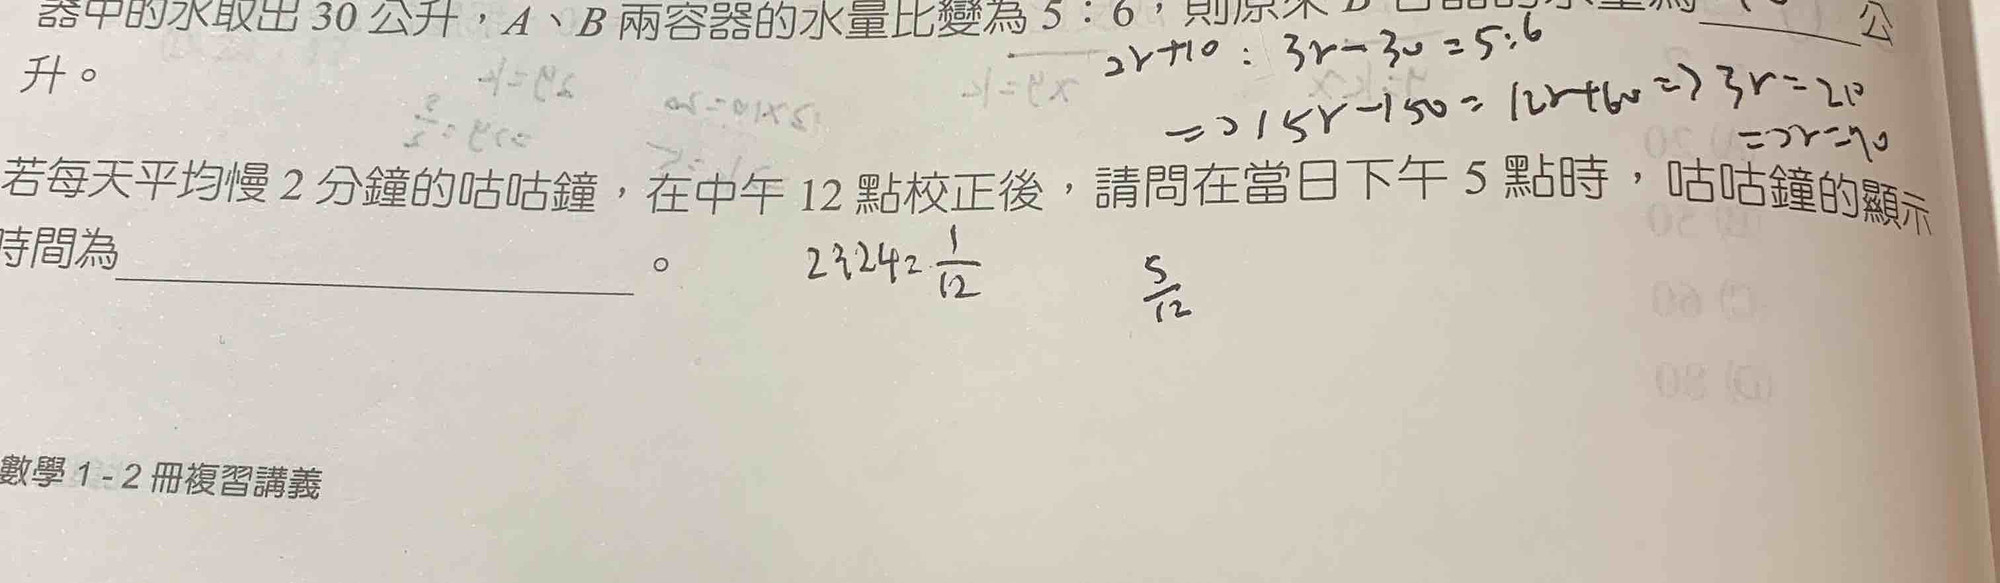 器中的水取出 30 公升，A、B 兩容器的水量比變為 5：6，則原來 B 公
2r+10 : 3r-30 = 5:6
升。
=> 15r-150 = 12r+60 => 3r = 210
=> r = 70
若每天平均慢 2 分鐘的咕咕鐘，在中午 12 點校正後，請問在當日下午 5 點時，咕咕鐘的顯示
時間為。
2:24 = 1/12
5/12
數學 1 - 2 冊複習講義